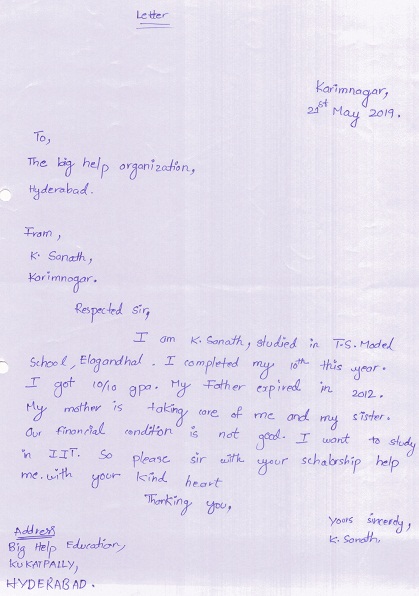 Letter
Karimnagar,
21st May 2019.
To,
The big help organization,
Hyderabad.
From,
K. Sanath,
Karimnagar.
Respected Sir,
I am K. Sanath, studied in T.S. Model
School, Elagandhal. I completed my 10th this year.
I got 10/10 gpa. My Father expired in 2012.
My mother is taking care of me and my sister.
Our financial condition is not good. I want to study
in IIT. So please sir with your scholarship help
me. with your kind heart
Thanking you,
Yours sincerely,
K. Sanath.
Address
Big Help Education,
KUKATPALLY,
HYDERABAD.